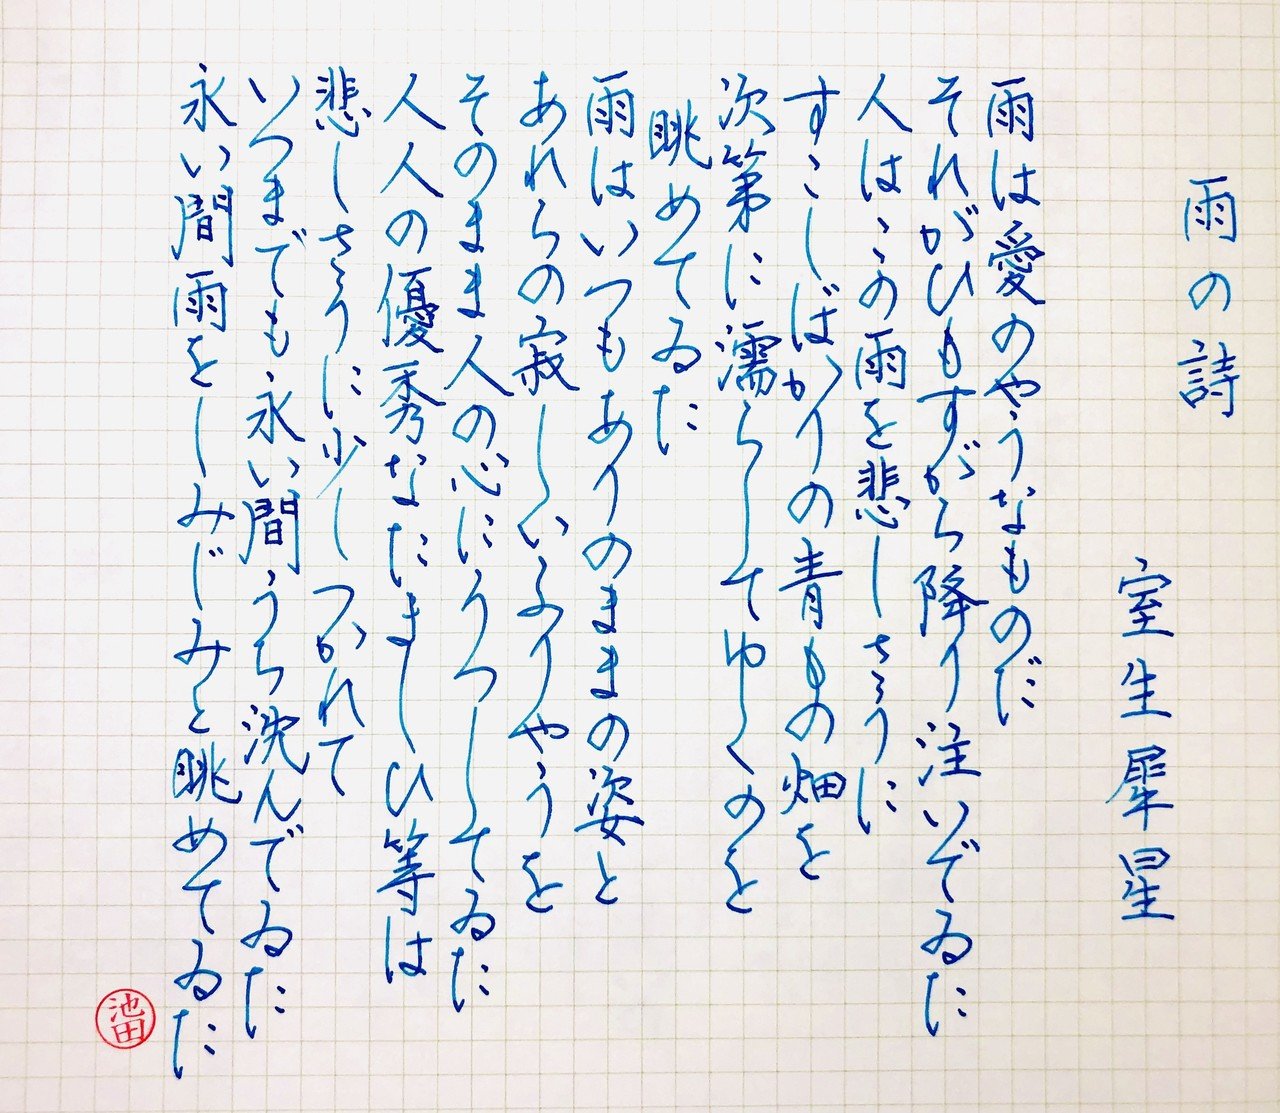 雨の詩
室生犀星
雨は愛のやうなものだ
それがひもすがら降り注いでゐた
人はこの雨を悲しさうに
すこしばかりの青もの畑を
次第に濡らしてゆくのを
眺めてゐた
雨はいつもありのままの姿と
あれらの寂しいふりやうを
そのまま人の心にうつしてゐた
人人の優秀なたましひ等は
悲しさうに少しつかれて
いつまでも永い間うち沈んでゐた
永い間雨をしみじみと眺めてゐた
池田